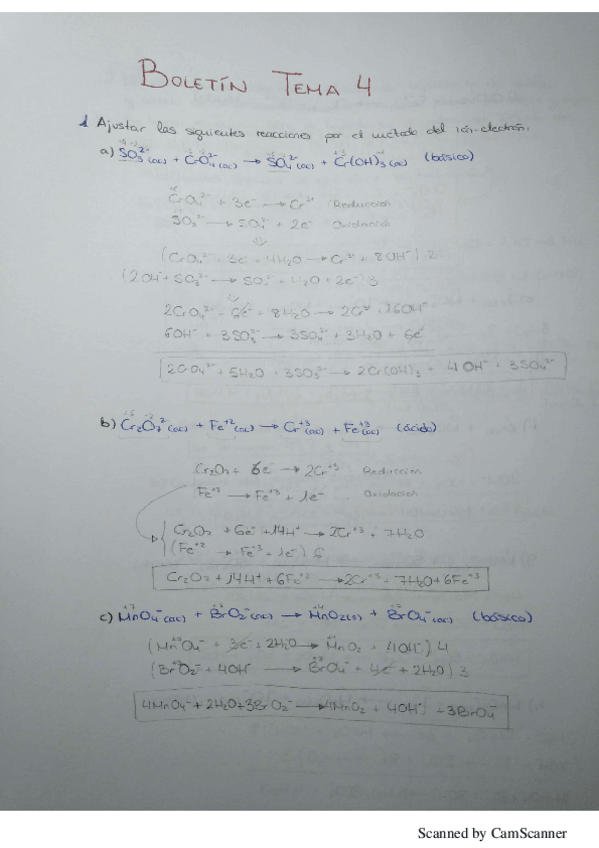 BOLETÍN TEMA 4
1 Ajustar las siguientes reacciones por el método del ión-electrón.
a) SO₃²⁻(ac) + CrO₄²⁻(ac) → SO₄²⁻(ac) + Cr(OH)₃(ac) (básico)
CrO₄²⁻ + 3e⁻ → Cr³⁺ Reducción
SO₃²⁻ → SO₄²⁻ + 2e⁻ Oxidación
(CrO₄²⁻ + 3e⁻ + 4H₂O → Cr³⁺ + 8OH⁻) 2
(2OH⁻ + SO₃²⁻ → SO₄²⁻ + H₂O + 2e⁻) 3
2CrO₄²⁻ + 6e⁻ + 8H₂O → 2Cr³⁺ + 16OH⁻
6OH⁻ + 3SO₃²⁻ → 3SO₄²⁻ + 3H₂O + 6e⁻
2CrO₄²⁻ + 5H₂O + 3SO₃²⁻ → 2Cr(OH)₃ + 4OH⁻ + 3SO₄²⁻
b) Cr₂O₇²⁻(ac) + Fe⁺²(ac) → Cr⁺³(ac) + Fe⁺³(ac) (ácido)
Cr₂O₇ + 6e⁻ → 2Cr⁺³ Reducción
Fe⁺² → Fe⁺³ + 1e⁻ Oxidación
Cr₂O₇ + 6e⁻ + 14H⁺ → 2Cr⁺³ + 7H₂O
(Fe⁺² → Fe⁺³ + 1e⁻) 6
Cr₂O₇ + 14H⁺ + 6Fe⁺² → 2Cr⁺³ + 7H₂O + 6Fe⁺³
c) MnO₄⁻(ac) + BrO₂⁻(ac) → MnO₂(s) + BrO₄⁻(ac) (básico)
(MnO₄⁻ + 3e⁻ + 2H₂O → MnO₂ + 4OH⁻) 4
(BrO₂⁻ + 4OH⁻ → BrO₄⁻ + 4e⁻ + 2H₂O) 3
4MnO₄⁻ + 2H₂O + 3BrO₂⁻ → 4MnO₂ + 4OH⁻ + 3BrO₄⁻
Scanned by CamScanner